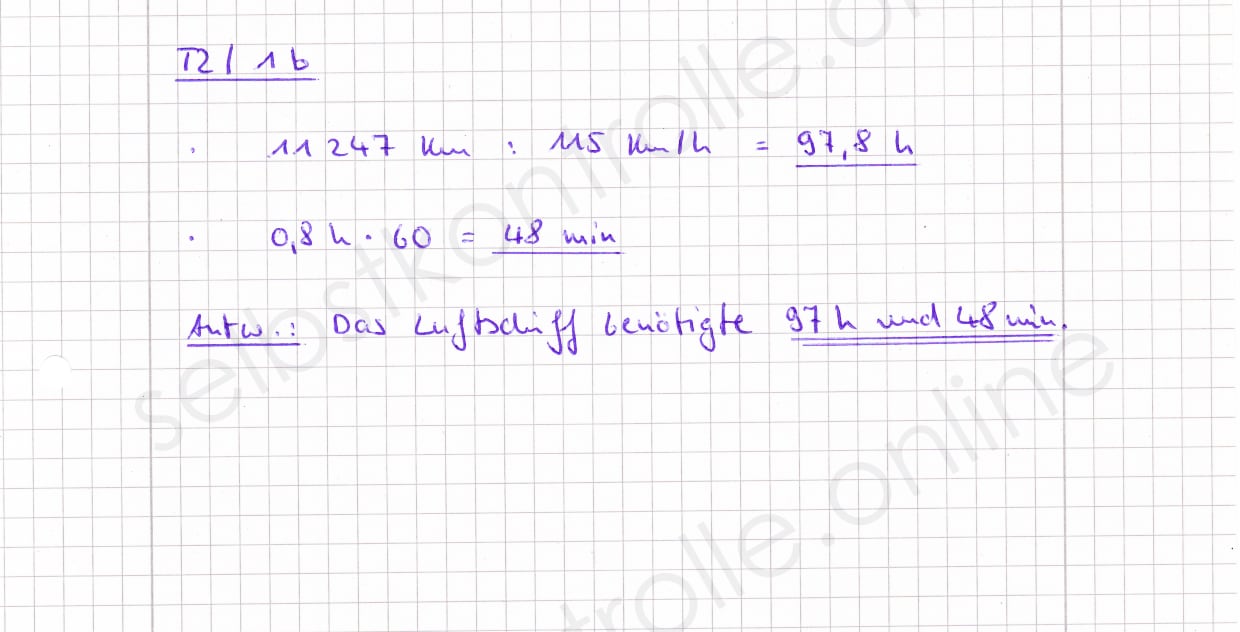 T2/ 1b
· 11 247 km : 115 km/h = 97,8 h
· 0,8 h · 60 = 48 min
Antw.: Das Luftschiff benötigte 97 h und 48 min.
selbstkontrolle.online
trolle.online